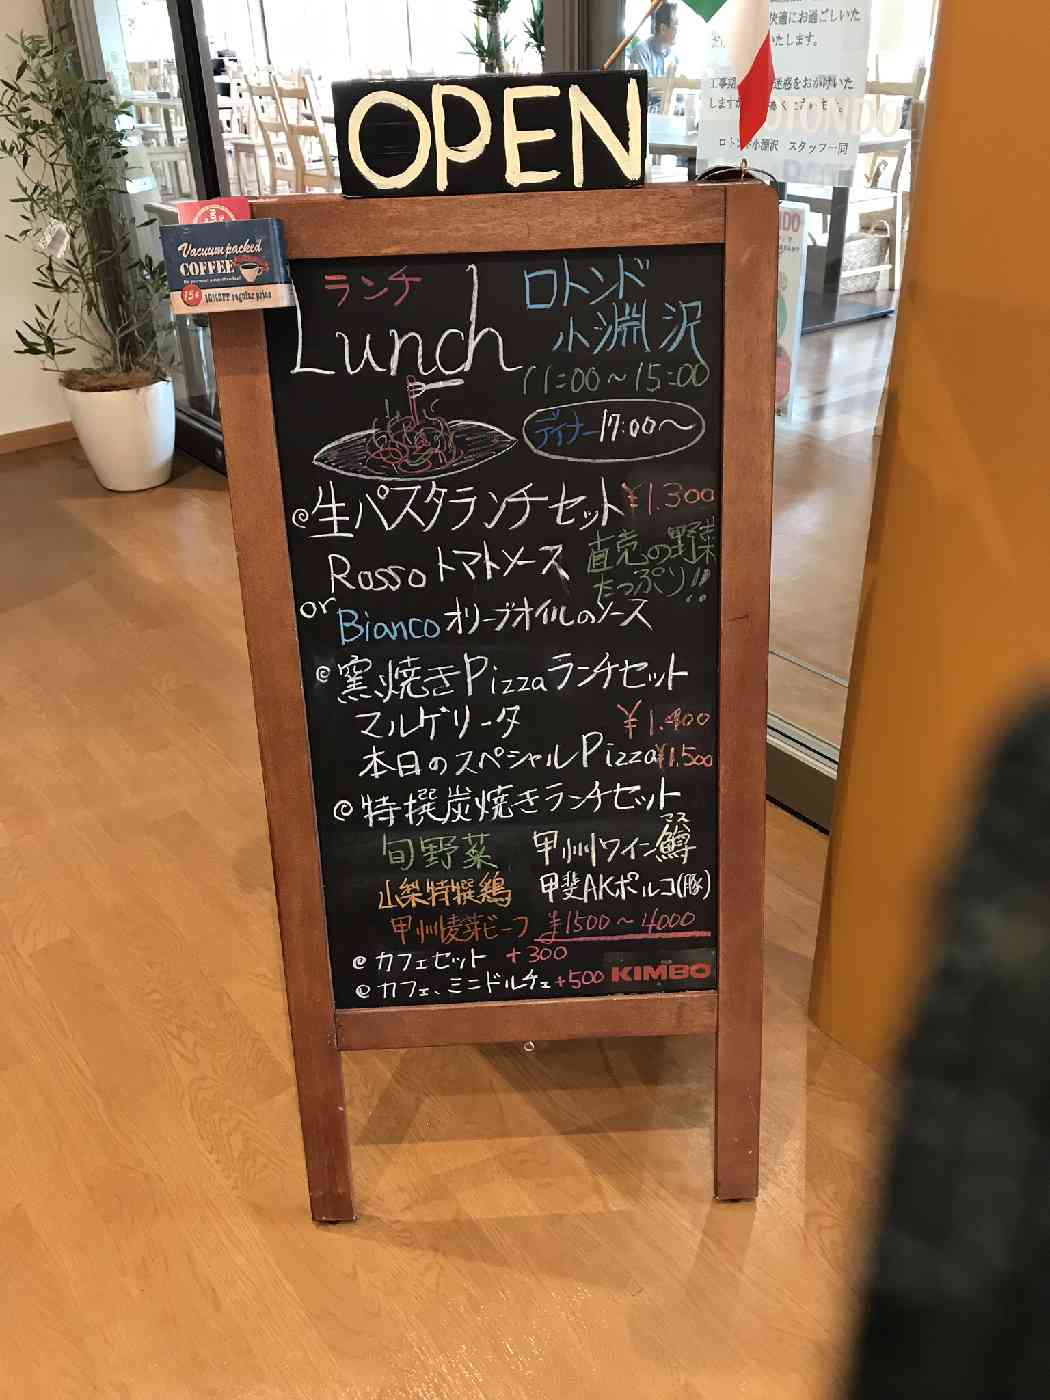 快適にお過ごしいた
いたします。
迷惑をおかけいた
します
ロトンド小淵沢 スタッフ一同
OPEN
Vacuum packed
COFFEE
ランチ
Lunch
ロトンド
小淵沢
11:00～15:00
ディナー17:00～
生パスタランチセット¥1.300
Rosso トマトソース
直売の野菜
たっぷり!!
or
Bianco オリーブオイルのソース
窯焼きPizzaランチセット
マルゲリータ ¥1.400
本日のスペシャルPizza¥1.500
特撰炭焼きランチセット
旬野菜
甲州ワイン鱒
マス
山梨特撰鶏
甲斐AKポルコ(豚)
甲州麦芽ビーフ ¥1500～4000
カフェセット +300
カフェ、ミニドルチェ+500
KIMBO